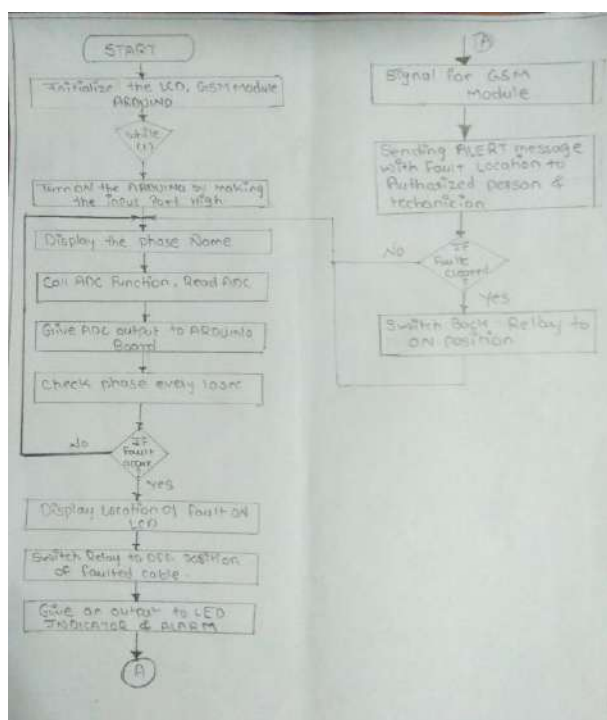 START
Initialize the LCD, GSM Module
ARDUINO
while
(1)
Turn ON the ARDUINO by making
the input Port High
Display the phase Name
Call ADC Function, Read ADC
Give ADC output to ARDUINO
Board
Check phase every 10sec
IF
Fault
occur
No
Yes
Display Location of fault on
LCD
Switch Relay to OFF Position
of faulted cable.
Give an output to LED
INDICATOR & ALARM
A
A
Signal for GSM
Module
Sending ALERT message
with Fault Location to
Authorized person &
technician
IF
Fault
cleared
?
No
Yes
Switch Back Relay to
ON position